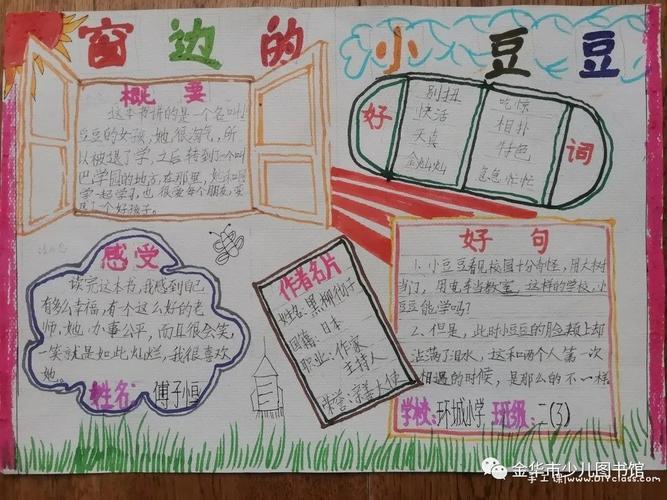 窗边的小豆豆
概要
这本书讲的是一个名叫小
豆豆的女孩,她很淘气,所
以被退了学,之后转到了一个叫
巴学园的地方,在那里,她和同
学一起学习,也很爱每个朋友,变
成了一个好孩子。
好词
别扭
快活
天真
金灿灿
吃惊
相扑
特色
急急忙忙
感受
读完这本书,我感到自己
有多么幸福,有个这么好的老
师,她办事公平,而且很会笑,
一笑就是如此灿烂,我很喜欢
她。
姓名:傅子恒
作者名片
姓名:黑柳彻子
国籍:日本
职业:作家
主持人
荣誉:亲善大使
好句
1.小豆豆看见校园十分奇怪,用大树
当门,用电车当教室,这样的学校,小
豆能学吗?
2.但是,此时小豆豆的脸颊上却
沾满了泪水,这和两个人第一次
相遇的时候,是那么的不一样
学校:环城小学 班级:二(3)
金华市少儿图书馆
手工课|www.DIYclass.com